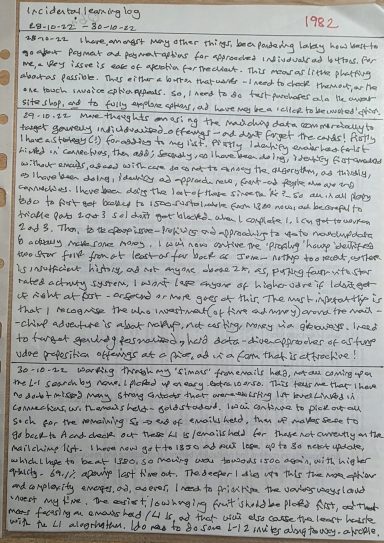 Incidental learning log
28-10-22 - 30-10-22
1982
28-10-22 I have, amongst many other things, been pondering lately how best to
go about payment and payment options for approached individuals and buttons. For
me, a key issue is ease of operation for the client. This means as little phaffing
about as possible. Thus either a button that works - I need to check them out, or the
one touch invoice option appeals. So, I need to do test purchases a la the
site shop, and to fully explore options, and have maybe a roller to be invited option.
29-10-22 More thoughts on using the mailing data commercially to
target genuinely individualised offerings - and don't forget the cards! Firstly
I have a strategy (!) for adding to my list. Firstly identify
linked in connections, then add; Secondly, as I have been doing, identify first
without emails, and add with care so as not to annoy the algorithm, and thirdly,
as I have been doing, identify and approach new, front end people who are 2nd
connections. I have been doing the last of these
to do to first get back to 1500 sustainable from 1380 now, and be careful to
parts 2 and 3 so I don't get blocked. When I complete 1, I can get to work on
2 and 3. Then,
to actually make some money. I will now continue the
two star folk from at least as far back as - nothing too recent, as there
is insufficient history, and not anyone above 2*, as, putting faith into star
rated activity system, I won't lose anyone of higher value if I don't get
it right at first - or second or more goes at this. The most important tip is
that I recognise the who investment (of time and money) around the mail-
-chimp adventure is about making, not costing money via giveaways. I need
to target genuinely personalised, held data-driven approaches of as true
value proposition offerings at a price, and in a form that is attractive!
30-10-22 Working through my 'simons' from emails held, not all coming up on
the L-I search by name, I picked up an easy extra 10 or so. This tells me that I have
no doubt missed many strong contacts that are existing 1st level linked in
connections, with emails held - gold standard. I will continue to pick out all
such for the remaining S's - end of emails held, then it makes sense to
go back to A and check out these LI is/emails held for those not currently on the
mailchimp list. I have now got to 1350 and will lose up to 30 next update,
which I hope to be at 1380, so moving up towards 1500 again, with higher
quality. 69% opening last time out. The deeper I dive into this the more options
and complexity emerges, and, as ever, I need to prioritise the various ways I could
invest my time. The easiest, low hanging fruit should be picked first, and that
means focusing on emails held / LI is, and that will also cause the least hassle
with the LI algorithm. I do need to do some L-I 2 invites along the way,